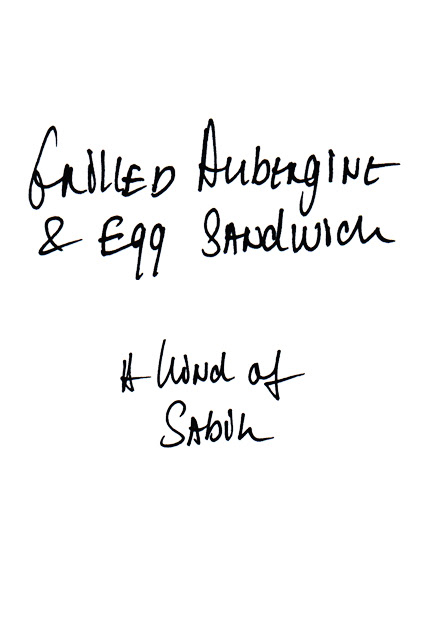 Grilled Aubergine
& Egg Sandwich
A kind of
Sabih